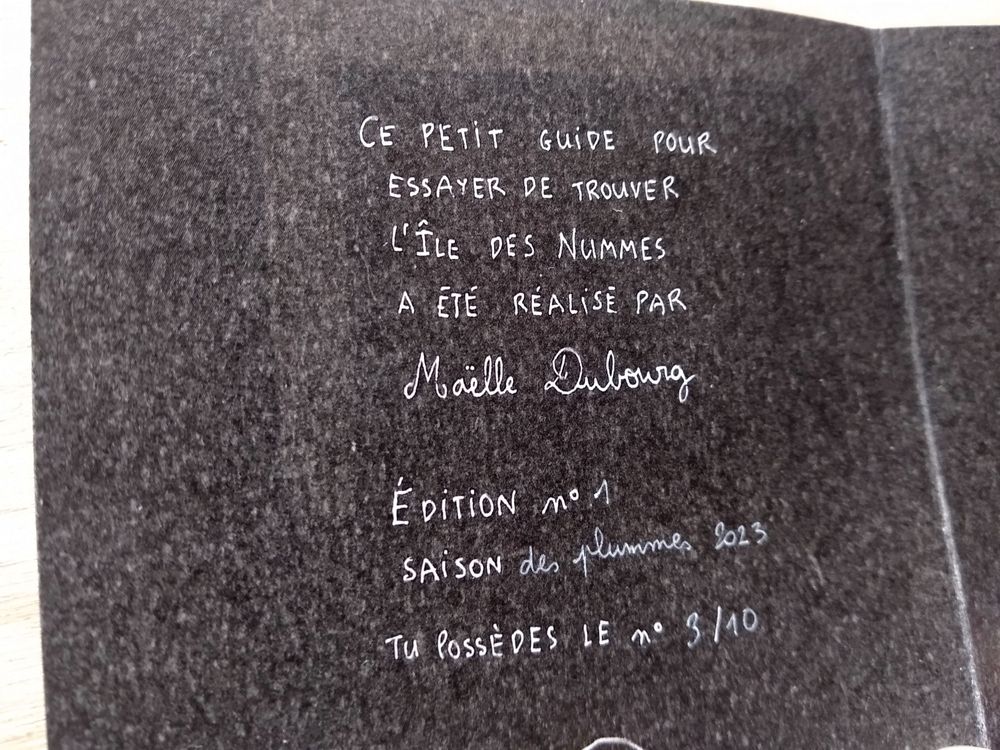 CE PETIT GUIDE POUR
ESSAYER DE TROUVER
L'ÎLE DES NUMMES
A ÉTÉ RÉALISÉ PAR
Maëlle Dubourg
ÉDITION n° 1
SAISON des plummes 2023
TU POSSÈDES LE n° 3/10